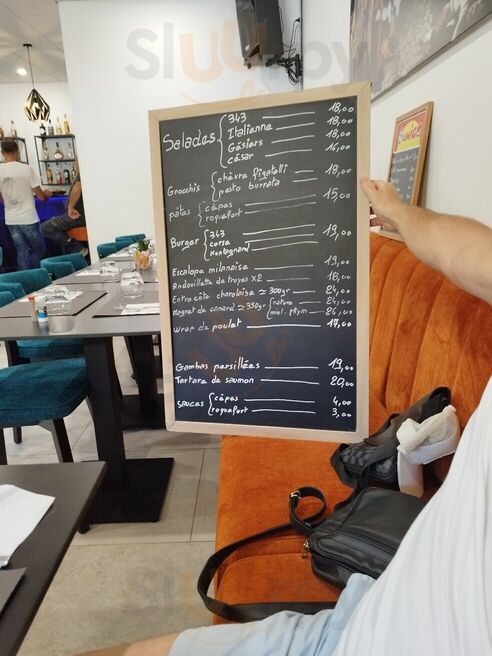 Salades
343 18,00
Italienne 18,00
Gésiers 18,00
césar 16,00
Gnocchis
chèvre figatelli 18,00
pesto burrata
pâtes
cèpes 15,00
roquefort
Burger
343 19,00
corsa
Montagnard
Escalope milanaise 19,00
Andouillette de troyes x2 18,00
Entrecôte charolaise ≈ 300gr 24,00
Magret de canard ≈ 350gr nature 24,00
miel. thym 26,00
wrap de poulet 17,00
Gambas persillées 19,00
Tartare de saumon 20,00
sauces
cèpes 4,00
roquefort 3,00